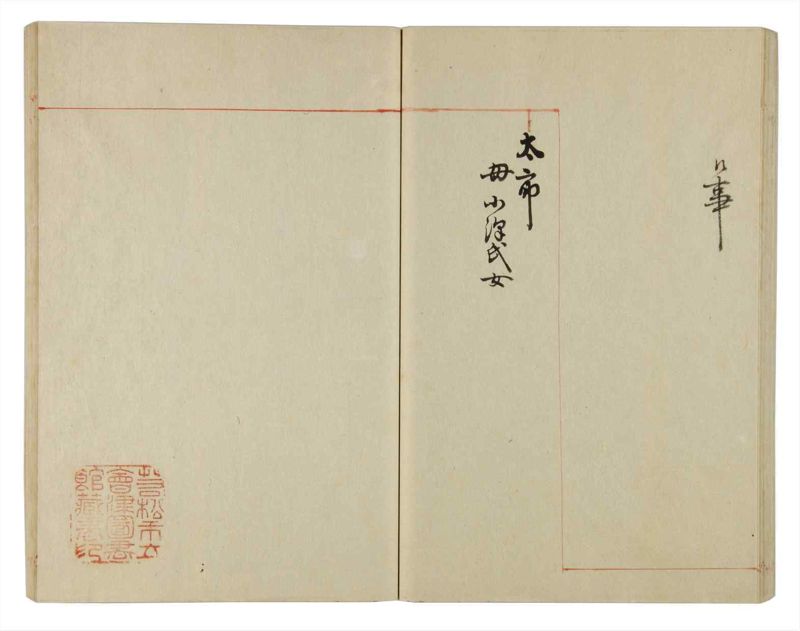 事
太市
母小澤氏女
若松市立
會津圖書
館藏書印